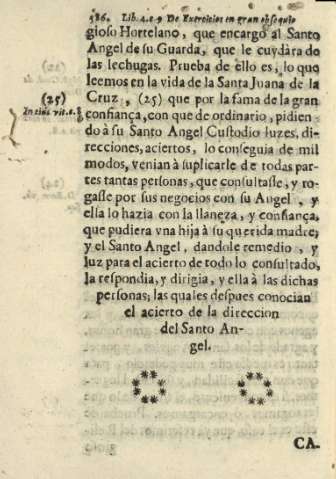 586. Lib. 4. c. 9 De Exercicios en gran obsequio
gioso Hortelano, que encargò al Santo
Angel de su Guarda, que le cuydàra de
las lechugas. Prueba de ello es, lo que
leemos en la vida de la Santa Juana de la
(25)
Cruz, (25) que por la fama de la gran
In eius vit. c. 8
confiança, con que de ordinario, pidien-
do à su Santo Angel Custodio luzes, di-
recciones, aciertos, lo conseguia de mil
modos, venian à suplicarle de todas par-
tes tantas personas, que consultasse, y ro-
gasse por sus negocios con su Angel, y
ella lo hazia con la llaneza, y confiança,
que pudiera vna hija à su querida madre;
y el Santo Angel, dandole remedio, y
luz para el acierto de todo lo consultado,
la respondia, y dirigia, y ella à las dichas
personas; las quales despues conocian
el acierto de la direccion
del Santo An-
gel.
CA-